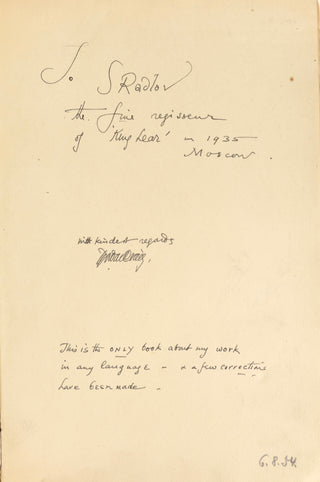 To S Radlov
the fine regisseur
of 'King Lear' in 1935
Moscow.
with kindest regards
This is the ONLY book about my work
in any language - x a few corrections
have been made -
6.8.